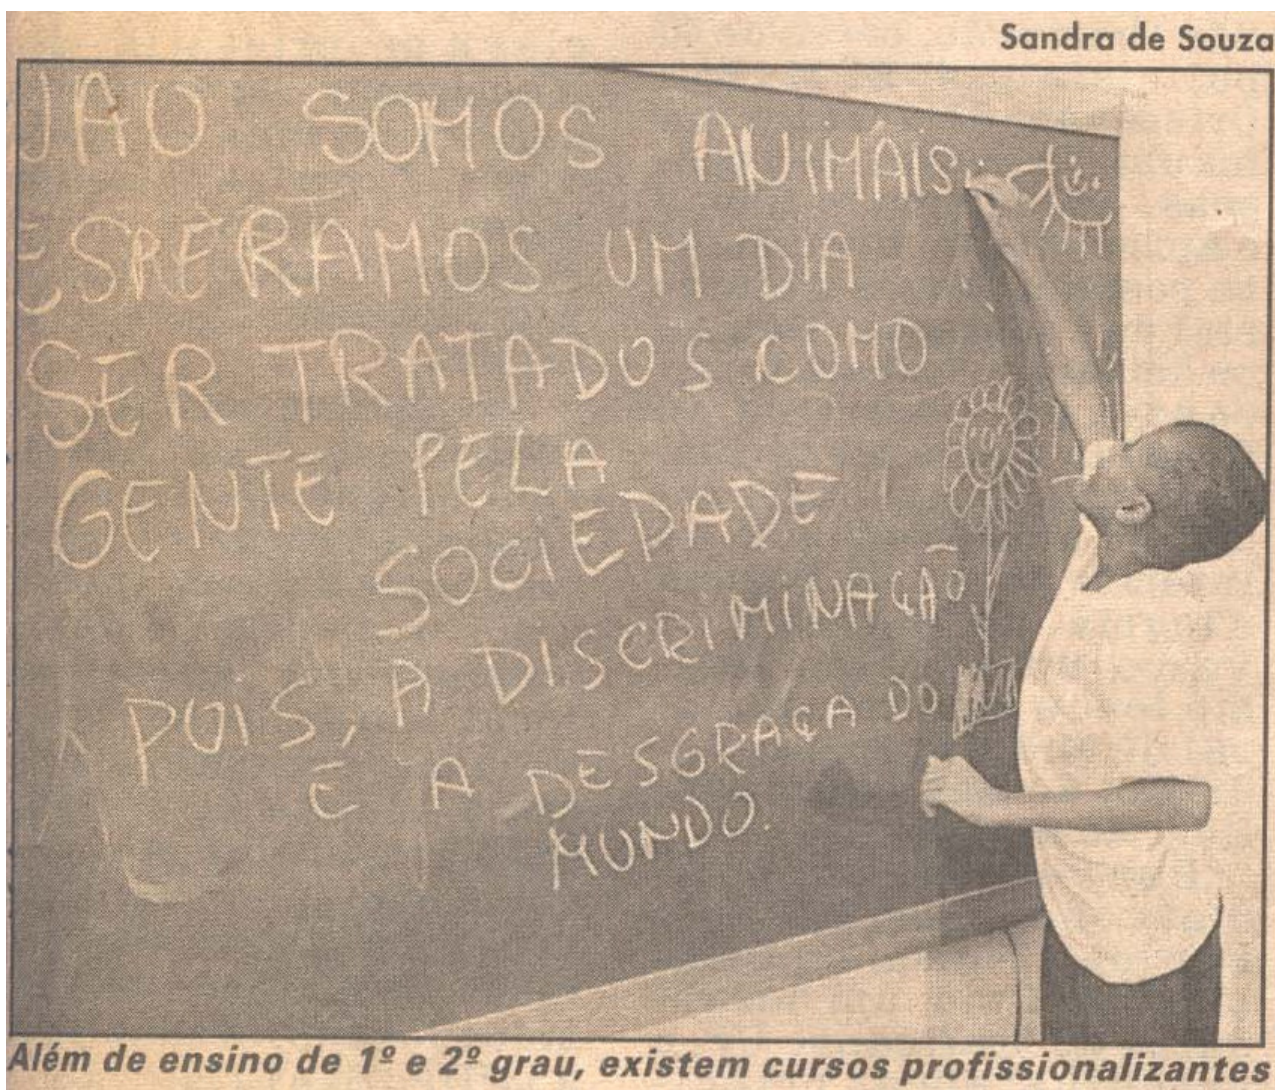 Sandra de Souza
NÃO SOMOS ANIMÁIS.
ESPERAMOS UM DIA
SER TRATADOS COMO
GENTE PELA
SOCIEDADE!
POIS, A DISCRIMINAÇÃO
E A DESGRAÇA DO
MUNDO.
Além de ensino de 1º e 2º grau, existem cursos profissionalizantes